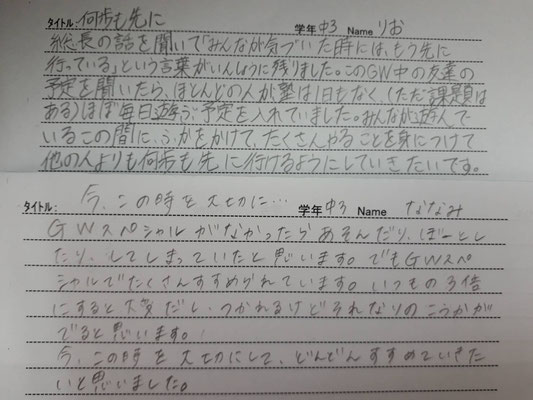 タイトル: 何歩も先に 学年 中3 Name りお
総長の話を聞いて「みんなが気づいた時には、もう先に
行っている」という言葉がいんしょうに残りました。このGW中の友達の
予定を聞いたら、ほとんどの人が塾は1日もなく(ただ課題は
ある)ほぼ毎日遊ぶ予定を入れていました。みんなが遊んで
いるこの間に、ふかをかけて、たくさんやることを身につけて
他の人よりも何歩も先に行けるようにしていきたいです。
タイトル: 今、この時を大切に… 学年 中3 Name ななみ
GWスペシャルがなかったらあそんだり、ぼーとし
たり、してしまっていたと思います。でもGWスペ
シャルでたくさんすすめられています。いつもの3倍
にすると大変だし、つかれるけどそれなりのこうかが
でると思います。
今、この時を大切にして、どんどんすすめていきた
いと思いました。